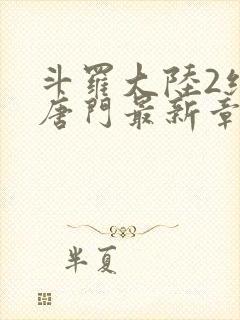 斗羅大陸2
唐門最新章
半夏